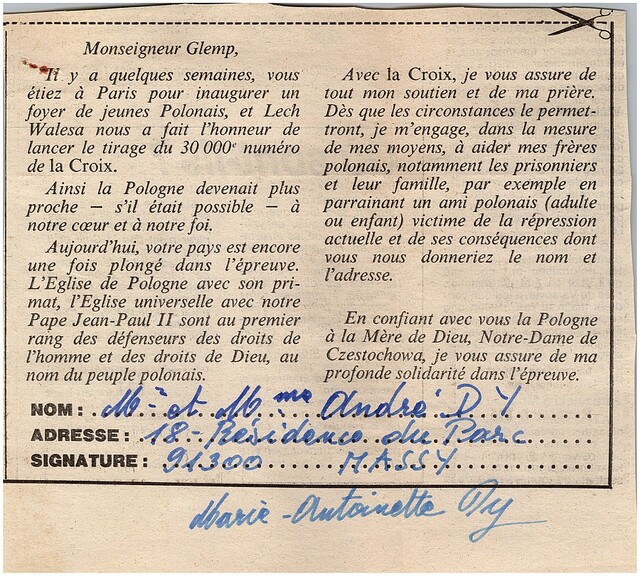 Monseigneur Glemp,
Il y a quelques semaines, vous
étiez à Paris pour inaugurer un
foyer de jeunes Polonais, et Lech
Walesa nous a fait l'honneur de
lancer le tirage du 30 000e numéro
de la Croix.
Ainsi la Pologne devenait plus
proche — s'il était possible — à
notre cœur et à notre foi.
Aujourd'hui, votre pays est encore
une fois plongé dans l'épreuve.
L'Eglise de Pologne avec son pri-
mat, l'Eglise universelle avec notre
Pape Jean-Paul II sont au premier
rang des défenseurs des droits de
l'homme et des droits de Dieu, au
nom du peuple polonais.
Avec la Croix, je vous assure de
tout mon soutien et de ma prière.
Dès que les circonstances le permet-
tront, je m'engage, dans la mesure
de mes moyens, à aider mes frères
polonais, notamment les prisonniers
et leur famille, par exemple en
parrainant un ami polonais (adulte
ou enfant) victime de la répression
actuelle et de ses conséquences dont
vous nous donneriez le nom et
l'adresse.
En confiant avec vous la Pologne
à la Mère de Dieu, Notre-Dame de
Czestochowa, je vous assure de ma
profonde solidarité dans l'épreuve.
NOM : Mr et Mme André DY
ADRESSE : 18 - Résidence du Parc
SIGNATURE : 91300 MASSY
Marie-Antoinette Dy